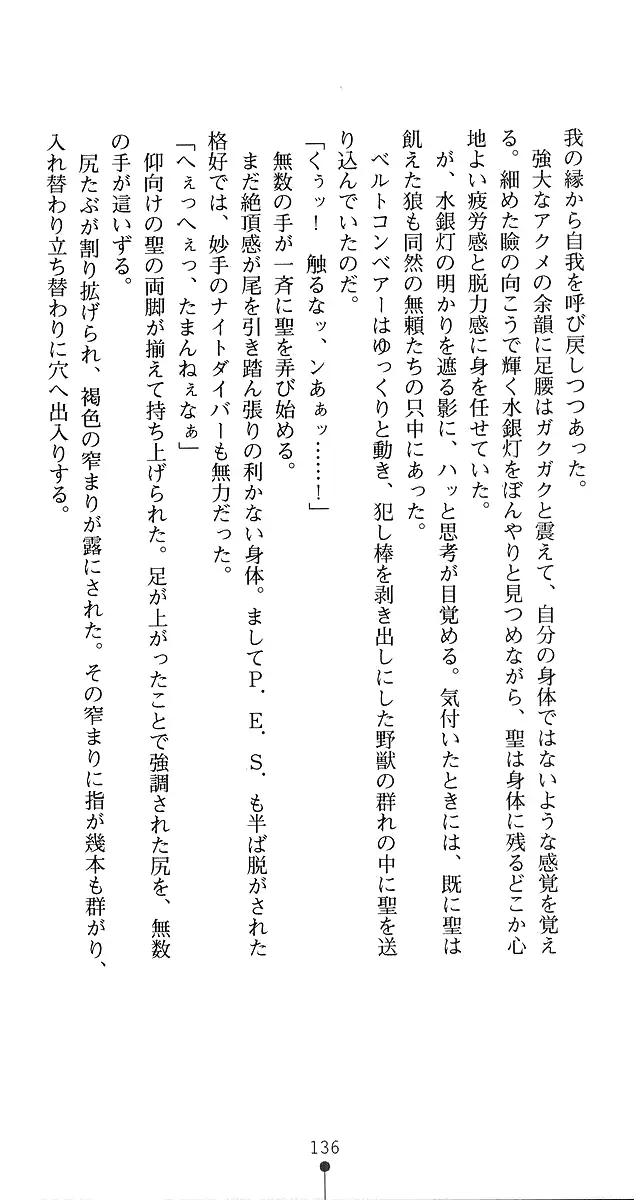 我の縁から自我を呼び戻しつつあった。
強大なアクメの余韻に足腰はガクガクと震えて、自分の身体ではないような感覚を覚え
る。細めた瞼の向こうで輝く水銀灯をぼんやりと見つめながら、聖は身体に残るどこか心
地よい疲労感と脱力感に身を任せていた。
が、水銀灯の明かりを遮る影に、ハッと思考が目覚める。気付いたときには、既に聖は
飢えた狼も同然の無頼たちの只中にあった。
ベルトコンベアーはゆっくりと動き、犯し棒を剥き出しにした野獣の群れの中に聖を送
り込んでいたのだ。
「くぅッ！　触るなッ、ンあぁッ……！」
無数の手が一斉に聖を弄び始める。
まだ絶頂感が尾を引き踏ん張りの利かない身体。ましてＰ．Ｅ．Ｓ．も半ば脱がされた
格好では、妙手のナイトダイバーも無力だった。
「へぇっへぇっ、たまんねぇなぁ」
仰向けの聖の両脚が揃えて持ち上げられた。足が上がったことで強調された尻を、無数
の手が這いずる。
尻たぶが割り拡げられ、褐色の窄まりが露にされた。その窄まりに指が幾本も群がり、
入れ替わり立ち替わりに穴へ出入りする。
136